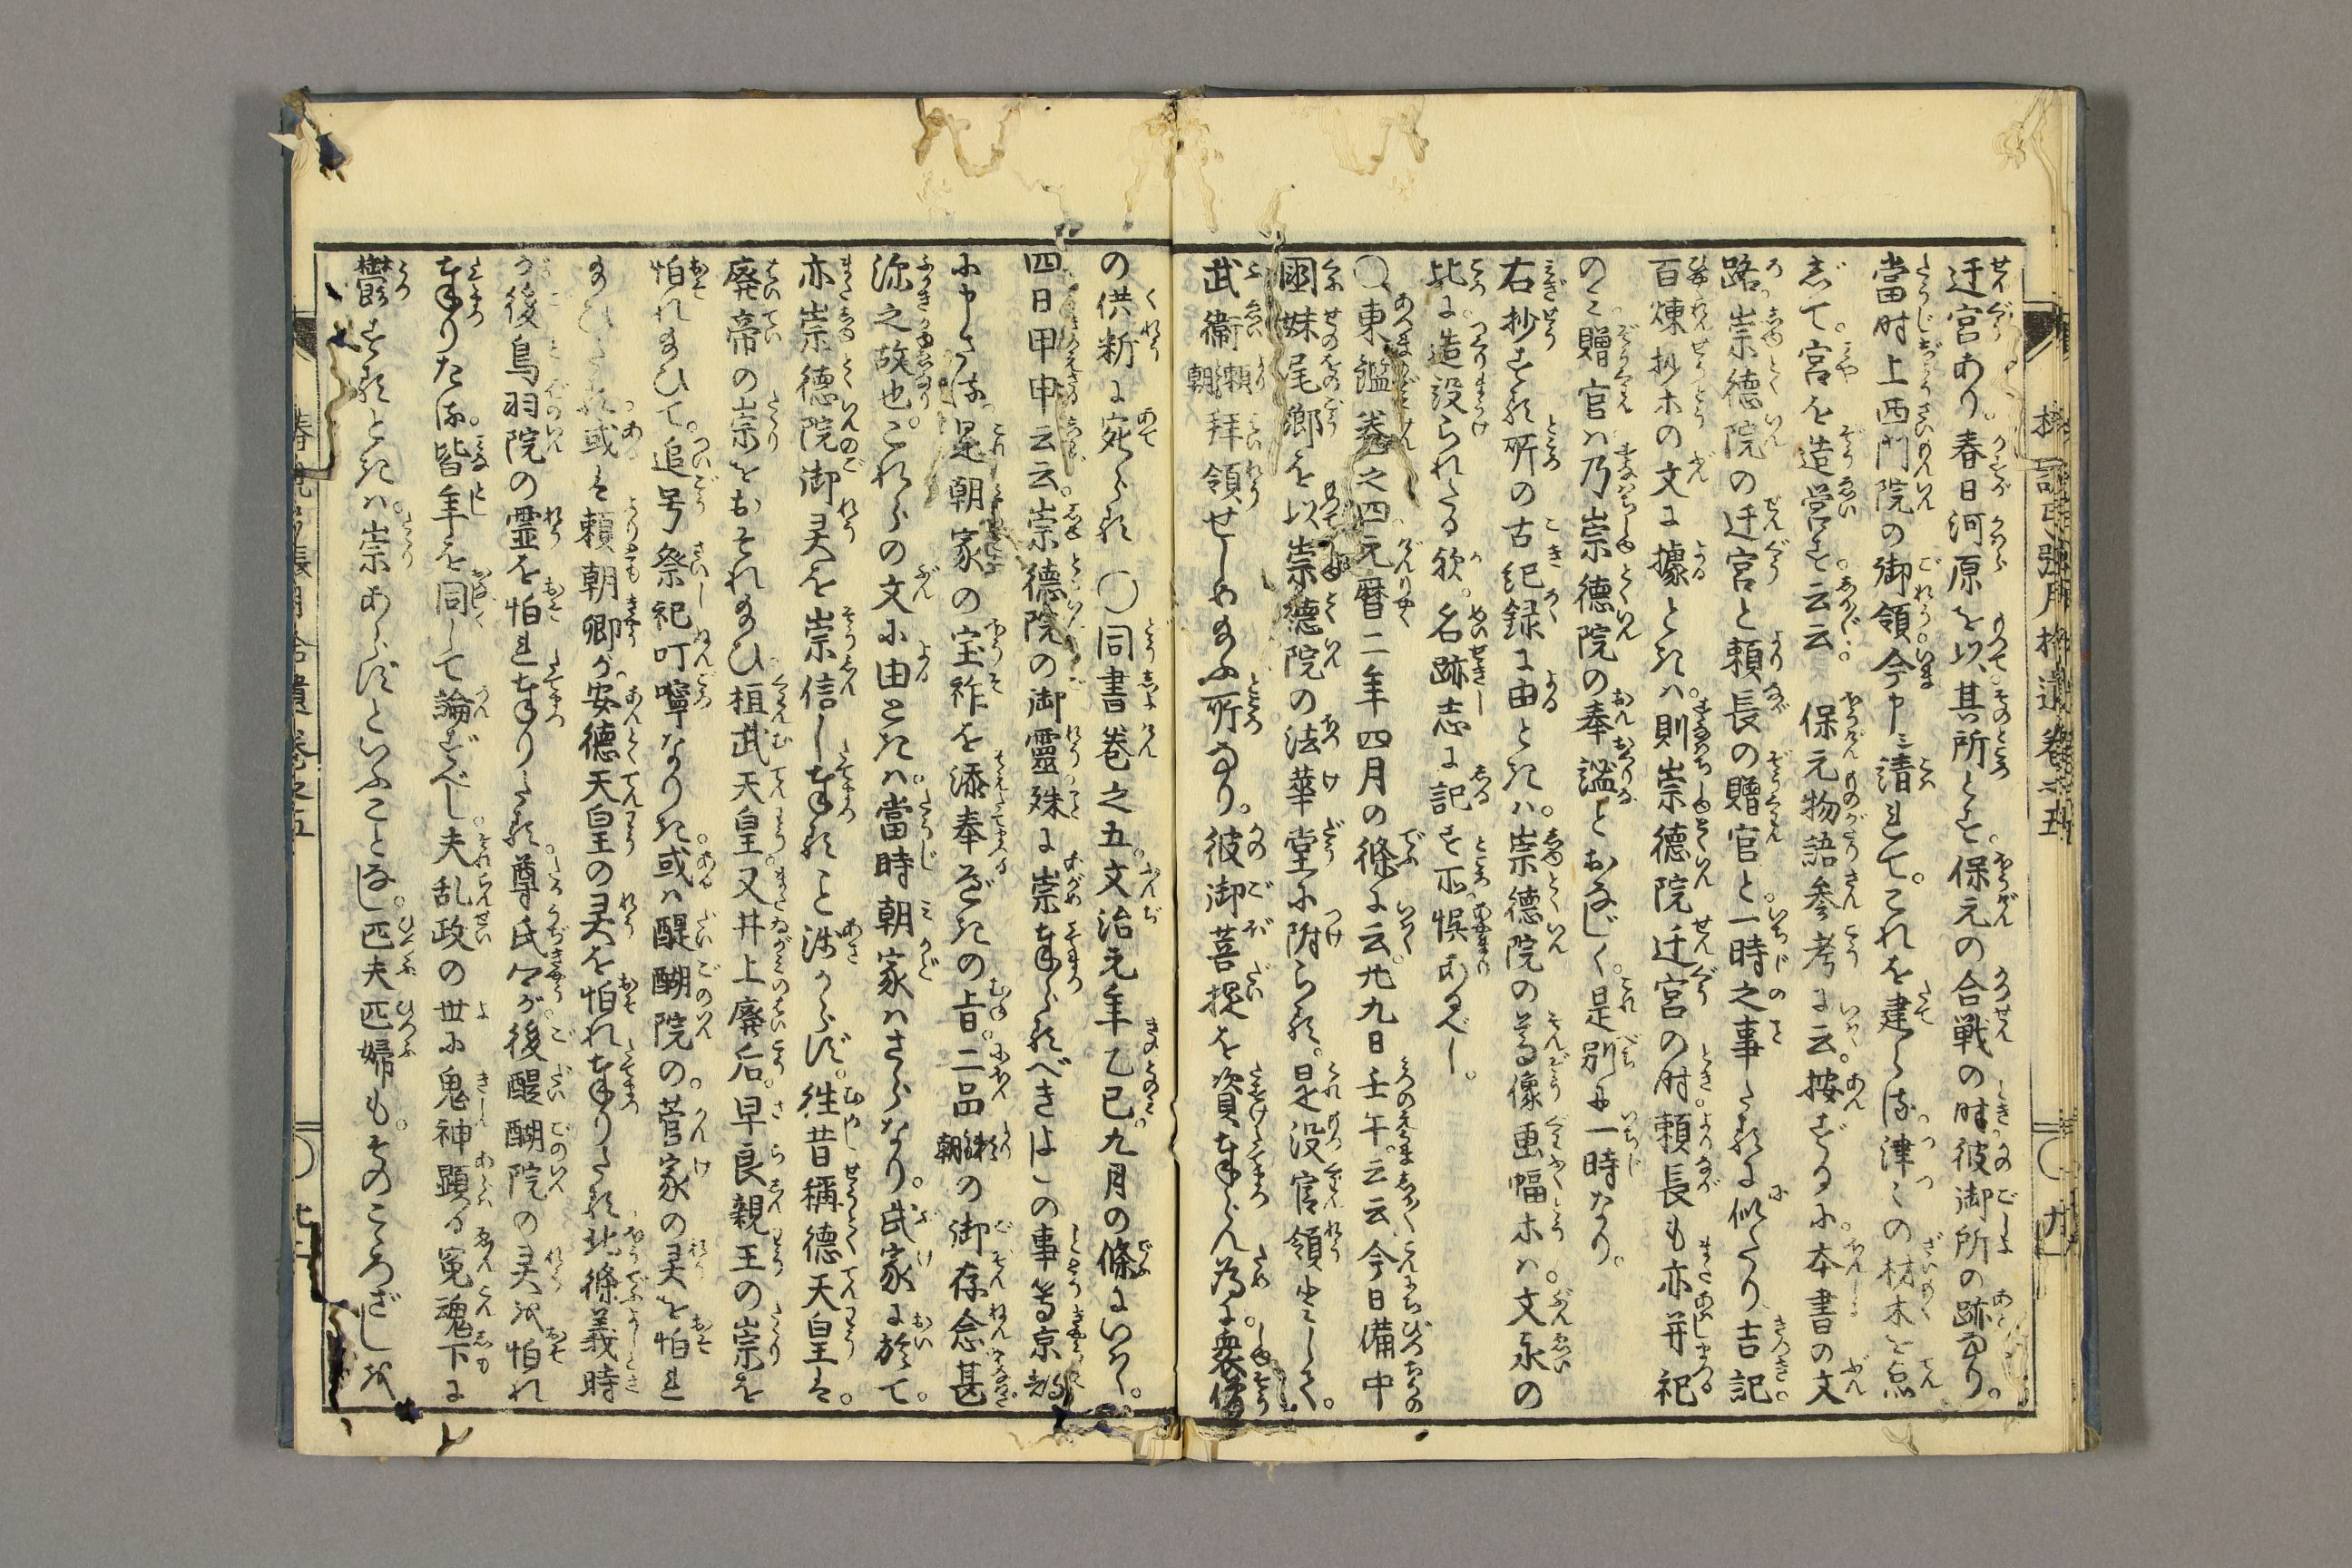 迁宮あり。春日河原を以其所とす。保元の合戦の時彼御所の跡なり。
當时上西門院の御領今申請れて。これを建らる津〻の材木を点
じて。宮を造営す云云。保元物語参考に云。按ずるに。本書の文
路崇德院の迁宮と頼長の贈官と。一時之事たるに似たり吉記。
百煉抄ホの文に據ときは。則崇徳院迁宮の时頼長も亦并祀
のミ贈官は乃崇徳院の奉謚とおなじく。是別に一時なり。
右抄する所の古紀録に由ときは。崇徳院の尊像画幅ホは。文永の
比に造設られたる欤。名跡志に記す所。悞あるべし。
○東鑑巻之四元暦二年四月の條に云。廿九日壬午。云云今日備中
國妹尾郷を以崇德院の法華堂に附らる。是没官領として。
武衛頼朝拜領せしめ給ふ所なり。彼御菩提を資奉らん為に。衆僧
の供新に宛らる ○同書巻之五。文治元年乙巳。九月の條にいはく。
四日甲申云云。崇德院の御靈殊に崇奉らるべきよしの事等京都
に申さる。是朝家の宝祚を添奉べきの旨。二品頼朝の御存念甚
深之故也。これらの文に由ときは。當時朝家はさらなり。武家に於て。
亦崇徳院御灵を崇信し奉ること浅からず。徃昔稱徳天皇は。
廃帝の崇をおそれ給ひ桓武天皇。又井上廢后。早良親王の崇を
怕れ給ひて。追号祭祀叮嚀なりき或は醍醐院の。菅家の灵を怕れ
給ひたる。或は頼朝卿が。安德天皇の灵を怕れ奉りたる北條義時
が後鳥羽院の霊を怕れ奉りたる。尊氏々が後醍醐院の灵を怕れ
奉りたる。皆年を同して論ずべし。夫乱政の世に鬼神顕る寃魂下に
欝するときは。崇あらずといふことなし。匹夫匹婦も。そのこゝろざしを